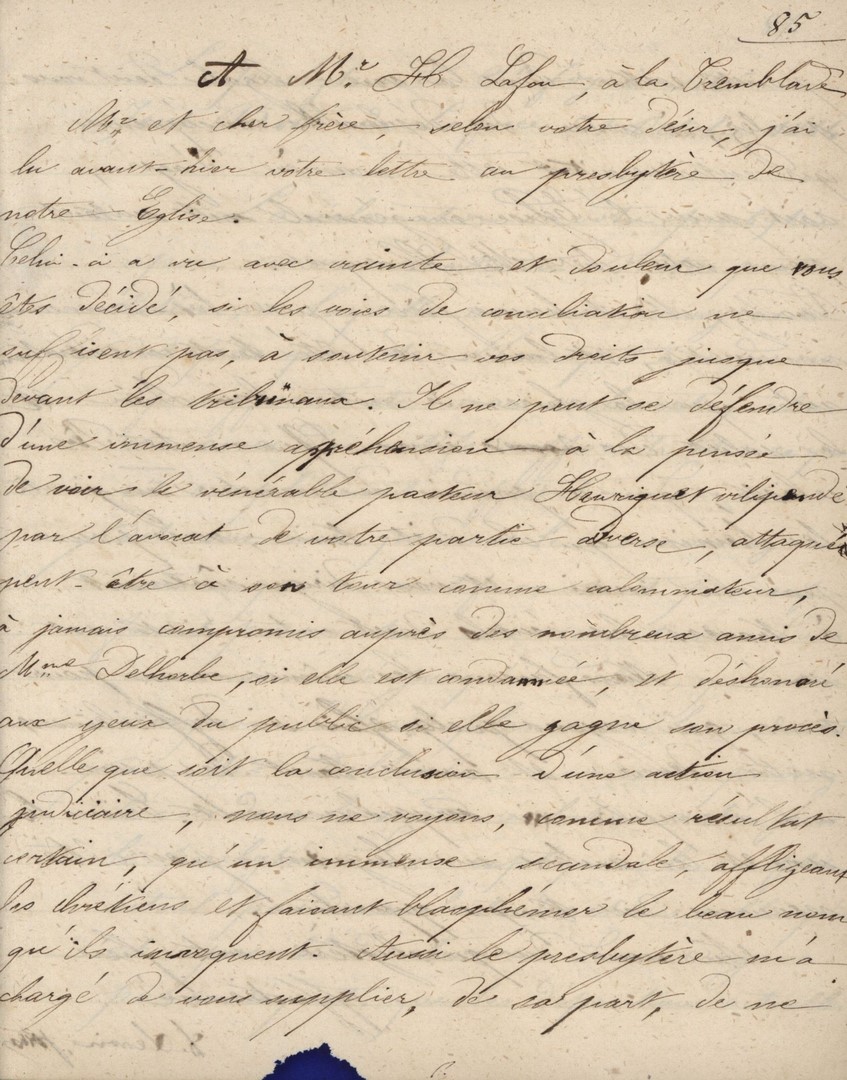 85
A Mr. H Lafon, à la Tremblade
Mr et cher frère, selon votre désir, j'ai
lu avant-hier votre lettre au presbytère de
notre Eglise.
Celui-ci a vu avec crainte et douleur que vous
êtes décidé, si les voies de conciliation ne
suffisent pas, à soutenir vos droits jusque
devant les tribunaux. Il ne peut se défendre
d'une immense appréhension à la pensée
de voir le vénérable pasteur Henriquet vilipendé
par l'avocat de votre partie adverse, attaqué
peut-être à son tour comme calomniateur,
à jamais compromis auprès des nombreux amis de
Mme Delhorbe, si elle est condamnée, et déshonoré
aux yeux du public si elle gagne son procès.
Quelle que soit la conclusion d'une action
judiciaire, nous ne voyons, comme résultat
certain, qu'un immense scandale, affligeant
les chrétiens et faisant blasphémer le beau nom
qu'ils invoquent. Aussi le presbytère m'a
chargé de vous supplier, de sa part, de ne